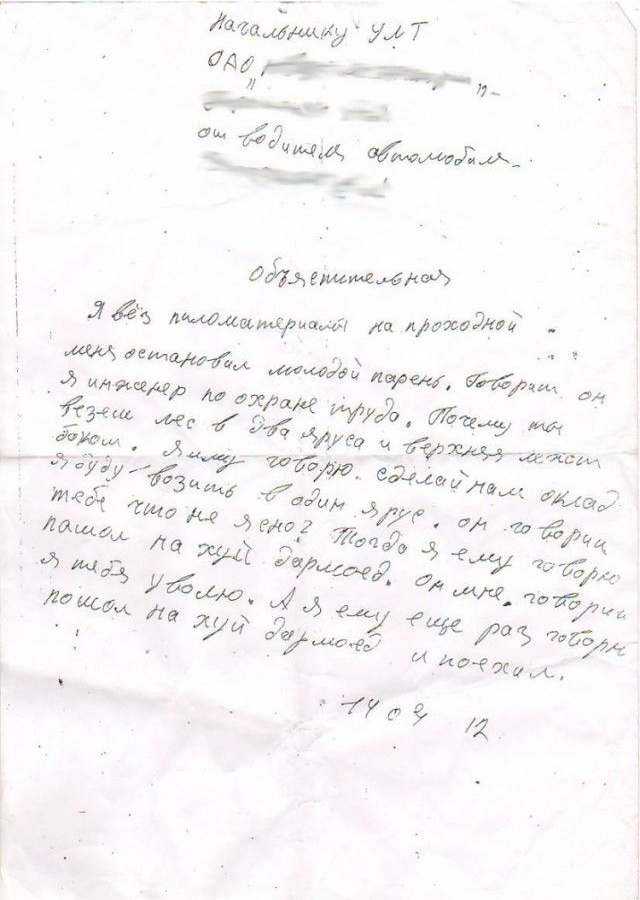 Начальнику УМТ
ОАО "
"-
от водителя автомобиля
Объястительная
Я вёз пиломатериалы на проходной
меня остановил молодой парень. Говорит он
я инженер по охране труда. Почему ты
везеш лес в два яруса и верхняя лежит
боком. Я ему говорю. сделай нам оклад
я буду возить в один ярус. он говорит
тебе что не ясно? Тогда я ему говорю
пашол на хуй дармоед. он мне. говорит
я тебя уволю. А я ему еще раз говорю
пошол на хуй дармоед и поехал.
14 04 12